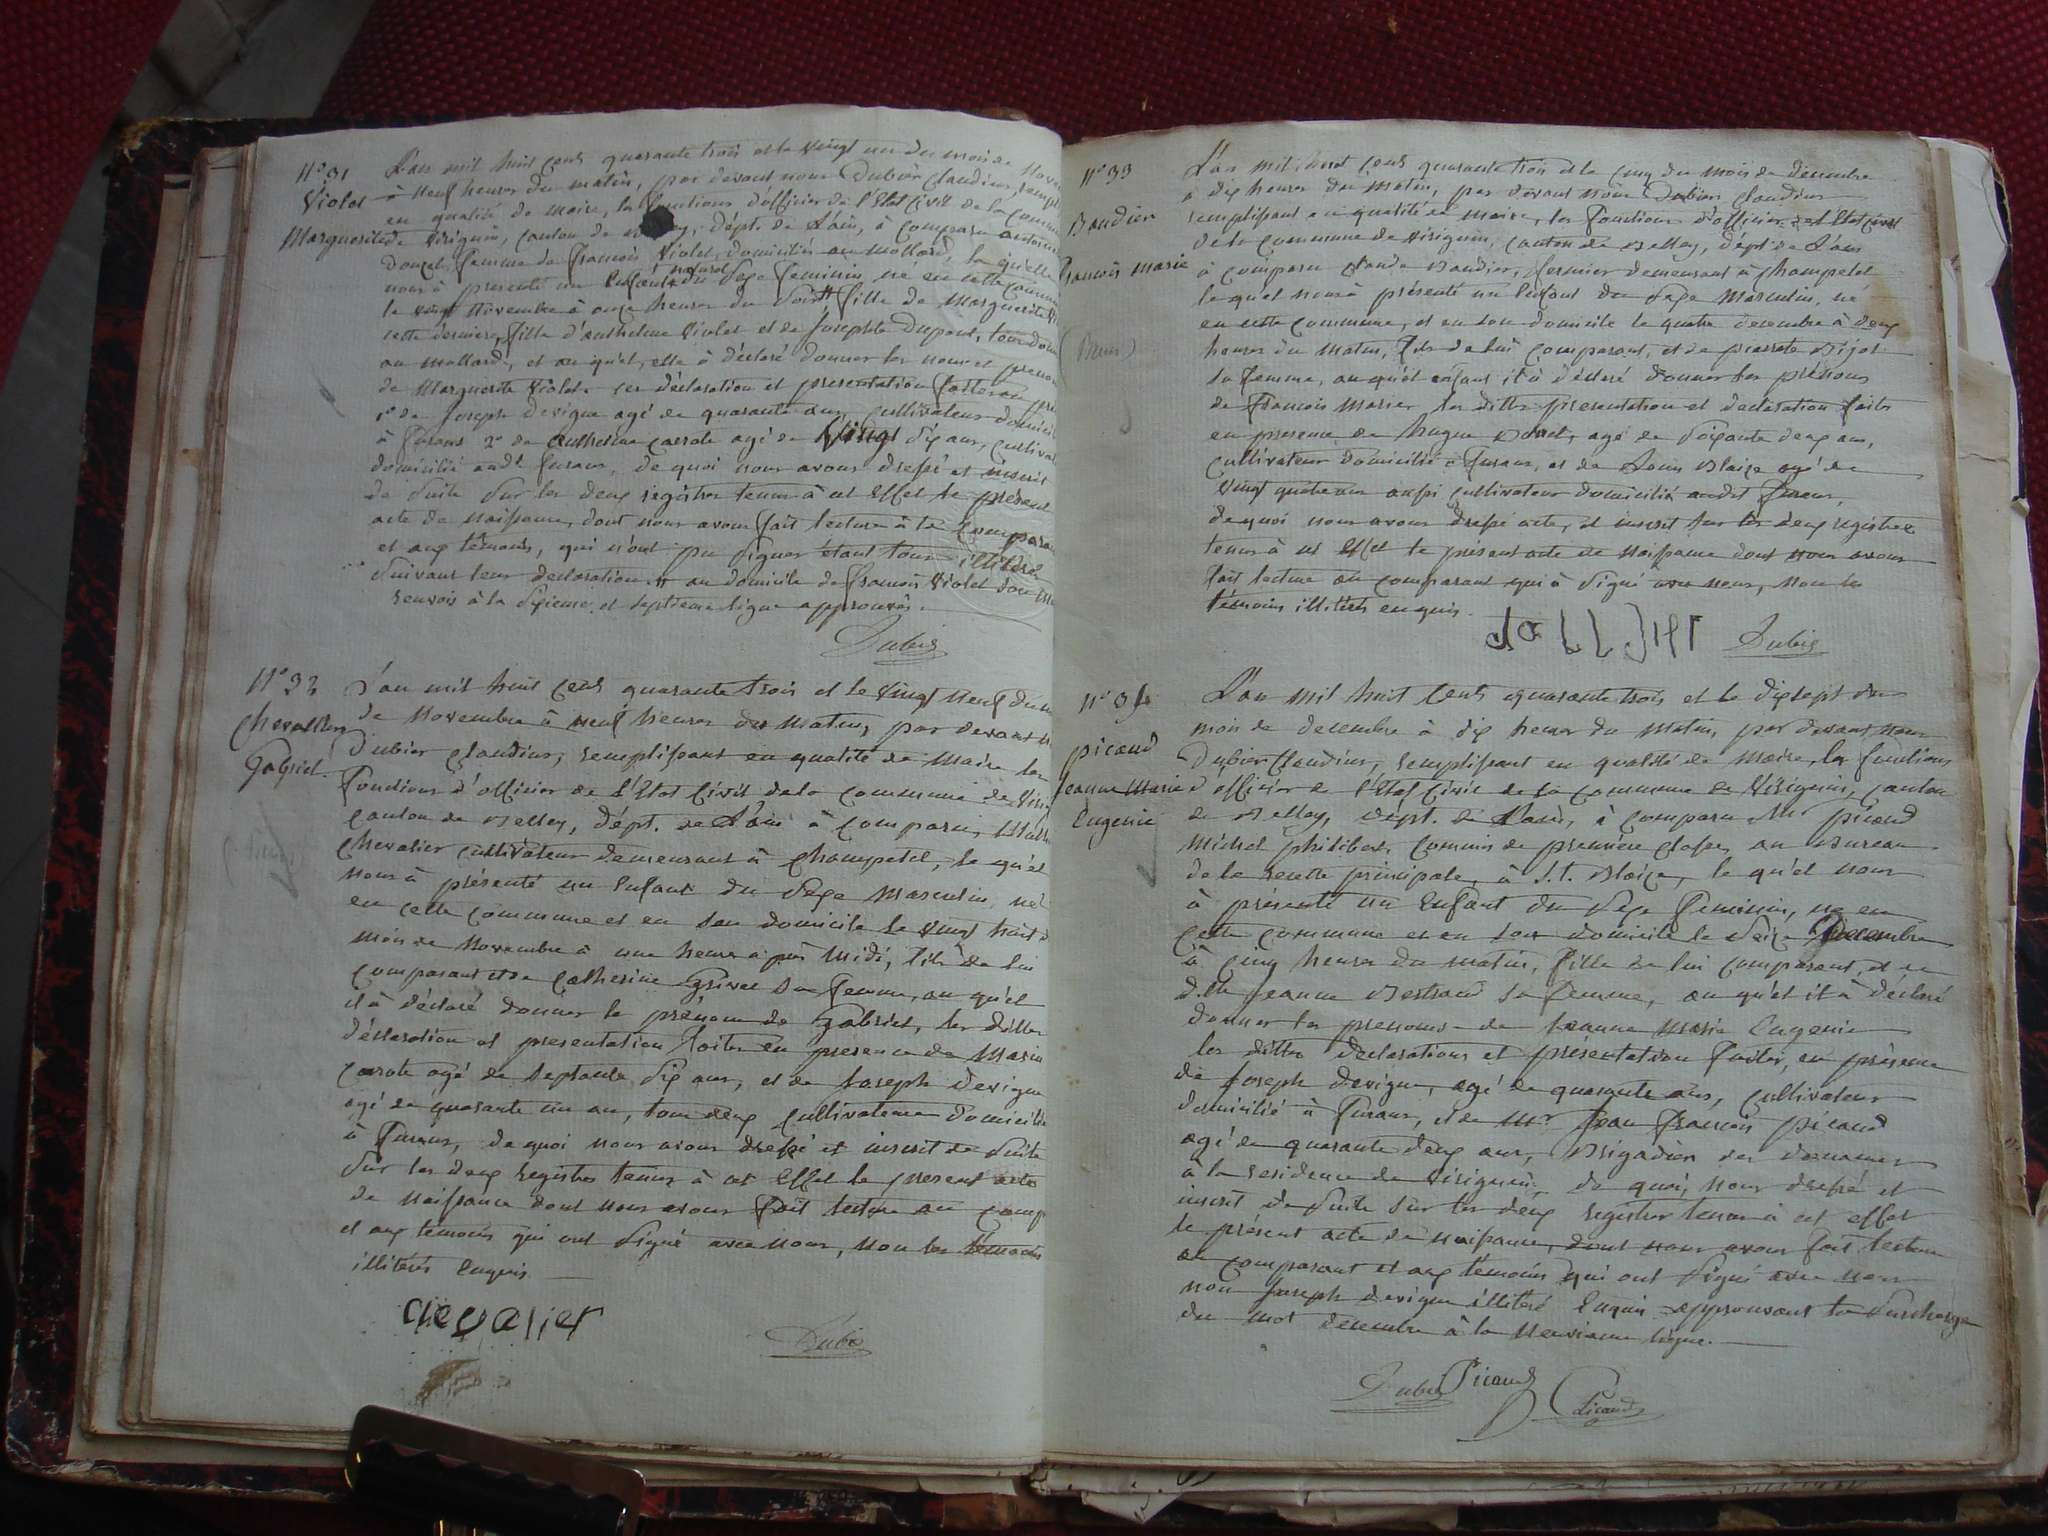 N° 31
Violet
Marguerite
L'an mil huit cent quarante trois et le vingt un du mois de Nove
à neuf heures du matin, par devant nous Dubier Claudius, rempl
en qualité de maire, les fonctions d'officier de l'Etat Civil de la Commune
de Virignin, canton de dépt. de L'ain, à comparu antoine
femme de François Violet, domiciliés au mollard, la qu'elle
nous à présenté un Enfant naturel du Sexe feminin, né en cette commune
le vingt Novembre à onze heures du soir # fille de Marguerite Vi
cette derniere, fille d'anthelme Violet et de Josephte Dupont, tous dom
au mollard, et au qu'el, elle à déclaré donner les nom et prenom
de Marguerite Violet. ces déclaration et presentation faites en pré
1° de Joseph Devigne agé de quarante ans, cultivateur domicilié
à furans 2° de anthelme carrote agé de Vingt dix ans, cultivat
domicilié audt furans, de quoi nous avons dressé et inscrit
de suite sur les deux registres tenus à cet effet le présent
acte de naissance, dont nous avons fait lecture à la Comparan
et aux témoins, qui n'ont pu signer étant tous illitérés
suivant leur declaration # au domicile de françois Violet
renvois à la sixieme et septieme ligne approuvés.
Dubier
N° 32
Chevallier
Gabriel.
L'an mil huit cent quarante trois et le vingt neuf du m
de Novembre à neuf heures du matin, par devant n
Dubier Claudius, remplissant en qualité de Maire les
fonctions d'officier de l'Etat Civil de la commune de Viri
canton de Belley, dépt. de L'ain à comparu,
Chevalier cultivateur demeurant à Champetel, le qu'el
nous à présenté un Enfant du Sexe Masculin, né
en cette commune et en son domicile le vingt huit d
mois de Novembre à une heure après midi, fils de lui
comparant et de Catherine Grivet sa femme, au qu'el
il à déclaré donner le prénom de Gabriel, les dittes
déclaration et presentation faites en presence de Marin
carrote agé de septante dix ans, et de Joseph Devigne
agé de quarante un an, tous deux cultivateurs domiciliés
à Furans, de quoi nous avons dressé et inscrit de suite
sur les deux registres tenus à cet effet le présent acte
de naissance dont nous avons fait lecture au comp
et aux témoins qui ont signé avec nous, non les témoins
illitérés Enquis
chevalier
Dubier
N° 33
Baudier
François Marie
L'an mil huit cent quarante trois et le cinq du mois de décembre
à dix heures du matin, par devant nous Dubier Claudius
remplissant en qualité de maire, les fonctions d'officier de l'Etat civil
de la commune de Virignin, canton de Belley, dépt. de L'ain
à comparu Claude Baudier, fermier demeurant à Champetel
le qu'el nous à présenté un Enfant du Sexe Masculin, né
en cette commune, et en son domicile le quatre decembre à deux
heures du matin, fils de lui comparant, et de pierrette
sa femme, au qu'el enfant il à déclaré donner les prénoms
de François Marie, les dittes présentation et declaration faites
en presence de hugue agé de soixante deux ans,
cultivateur domicilié à furans, et de Louis Blaize agé de
vingt quatre ans aussi cultivateur domicilié audit furans,
de quoi nous avons dressé acte, et inscrit sur les deux registres
tenus à cet effet le présent acte de naissance dont nous avons
fait lecture au comparant qui à signé avec nous, non les
témoins illitérés enquis.
Dubier
N° 34
picaud
Jeanne Marie
Eugenie
L'an mil huit cent quarante trois et le dixsept du
mois de decembre à dix heures du matin, par devant nous
Dubier Claudius, remplissant en qualité de Maire, les fonctions
d'officier de l'Etat Civil de la commune de Virignin, canton
de Belley, dépt. de L'ain, à comparu Mr picaud
Michel philibert, commis de première classe, au Bureau
de la recette principale, à St. Blaize, le qu'el nous
à présenté un Enfant du Sexe Feminin, né en
cette commune et en son domicile le seize Decembre
à cinq heures du matin, fille de lui comparant, et de
Jeanne Bertrand sa femme, au qu'el il à déclaré
donner les prenoms de Jeanne Marie Eugenie
les dittes déclarations et présentation faites, en présence
de Joseph Devigne, agé de quarante ans, cultivateur
domicilié à Furans, et de Mr Jean François picaud
agé de quarante deux ans, Brigadier des douanes
à la residence de Virignin, de quoi, nous dressé et
inscrit de suite sur les deux registres tenus à cet effet
le présent acte de naissance, dont nous avons fait lecture
au comparant et aux témoins qui ont signé avec nous
non Joseph devigne illitéré Enquis approuvant la surcharge
du mot decembre à la neuvieme ligne.
Dubier Picaud Picaud